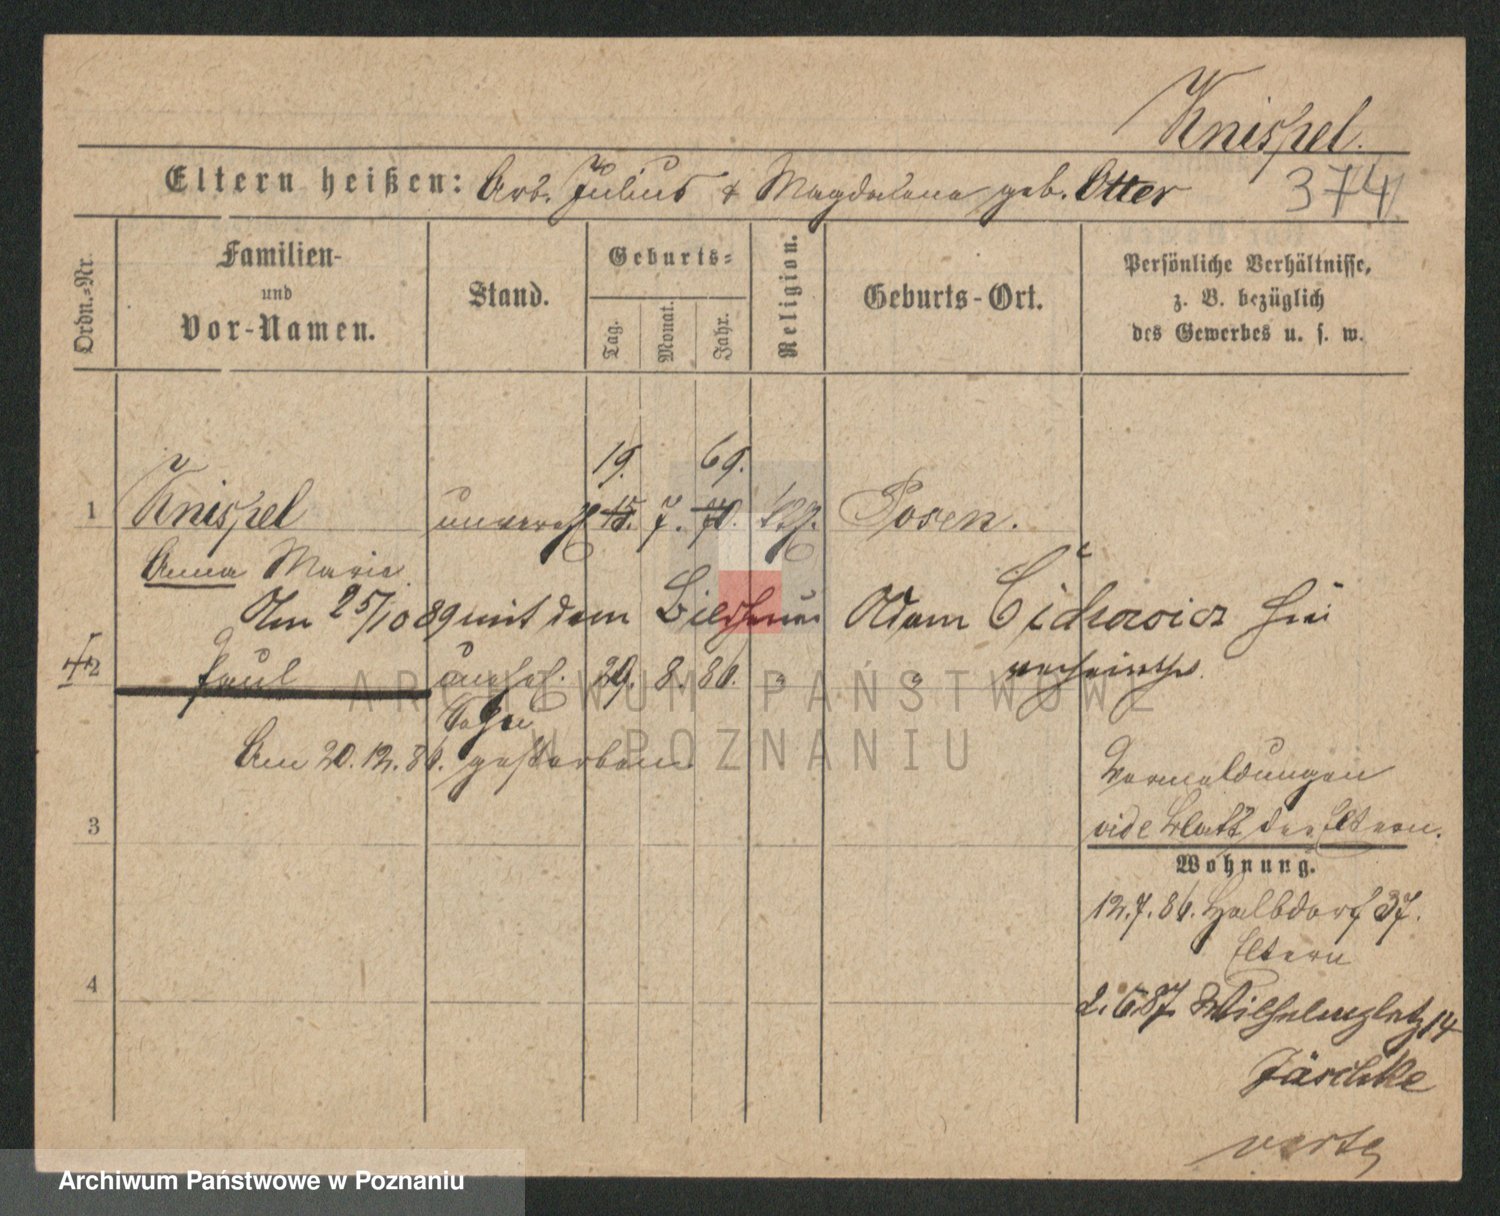 Knispel.
Eltern heißen: Arb. Julius & Magdalena geb. Otter
374
Ordn.=Nr.
Familien-
und
Vor-Namen.
Stand.
Geburts=
Tag.
Monat.
Jahr.
Religion.
Geburts-Ort.
Persönliche Verhältnisse,
z. B. bezüglich
des Gewerbes u. s. w.
19. 69.
1 Knispel unvereh. 18. 7. 70. Posen.
Anna Marie
Am 25/10 89 mit dem Bildhauer Adam hier
verheirathet.
2 Paul unehel. 29. 8. 86. " "
Sohn
Am 20.12.86. gestorben
Vermeldungen
vide Blatt der Eltern.
3
Wohnung.
12.7.86. Halbdorf 37.
Eltern
4
2.6.87. Wilhelmsplatz 14
Jäschke
verte
ARCHIWUM PAŃSTWOWE
W POZNANIU
Archiwum Państwowe w Poznaniu